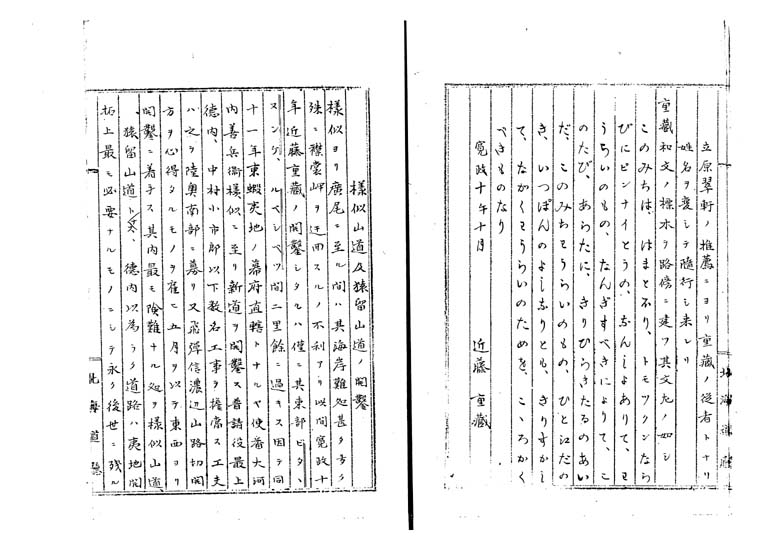 立原翠軒ノ推薦ニヨリ重藏ノ従者トナリ
姓名ヲ変シテ隨行シ来レリ
重藏和文ノ標木ヲ路傍ニ建ツ其文左ノ如シ
このみちは、はまとほり、トモツクシなら
びにビンナイとうの、なんしよありて、わ
うらいのもの、なんぎすべきによりて、こ
のたび、あらたに、きりひらきたるのあい
だ、このみちとうらいのもの、ひと江だの
き、いつぽんのよしなりとも、きりすかし
て、ながくわうらいのためを、こゝろかく
べきものなり
寛政十午十月
近藤重藏
北海道廳
様似山道及猿留山道ノ開鑿
様似ヨリ廣尾ニ至ル間ハ其海岸難処甚タ多ク
殊ニ襟裳岬ヲ迂回スルノ不利アリ以間寛政十
年近藤重藏ノ開鑿シタルハ僅ニ其東部ビタヽ
ヌンゲ、ルベシベツ間二里餘ニ過キス因テ同
十一年東蝦夷地ノ幕府直轄トナルヤ使番大河
内善兵衛様似ニ至リ新道ヲ開鑿ス普請役最上
徳内、中村小市郎以下数名工事ヲ擔当ス工夫
ハ之ヲ陸奥南部ニ募リ又飛彈信濃辺山路切開
方ヲ心得タルモノヲ雇ヒ五月ヲ以テ東西ヨリ
開鑿ニ着手ス其内最モ険難ナル処ヲ様似山道、
猿留山道トス、徳内以為ラク道路ハ夷地開
拓上最モ必要ナルモノニシテ永ク後世ニ残ル
北海道廳